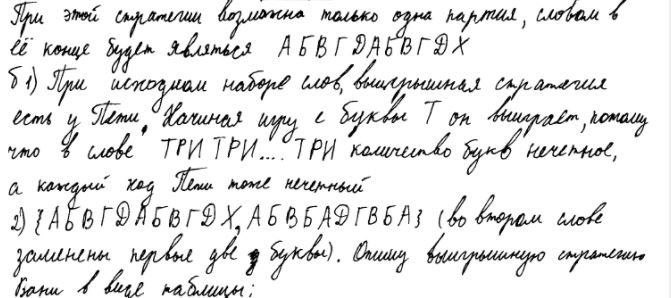 При этой стратегии возможна только одна партия, словом в
её конце будет являться АБВГДАБВГДХ
б 1) При исходном наборе слов, выигрышная стратегия
есть у Пети, Начиная игру с буквы Т он выиграет, потому
что в слове ТРИ ТРИ.... ТРИ количество букв нечетное,
а каждый ход Пети тоже нечетный
2) {АБВГДАБВГДХ, АБВБАДГВБА} (во втором слове
заменены первые две буквы). Опишу выигрышную стратегию
Вани в виде таблицы: